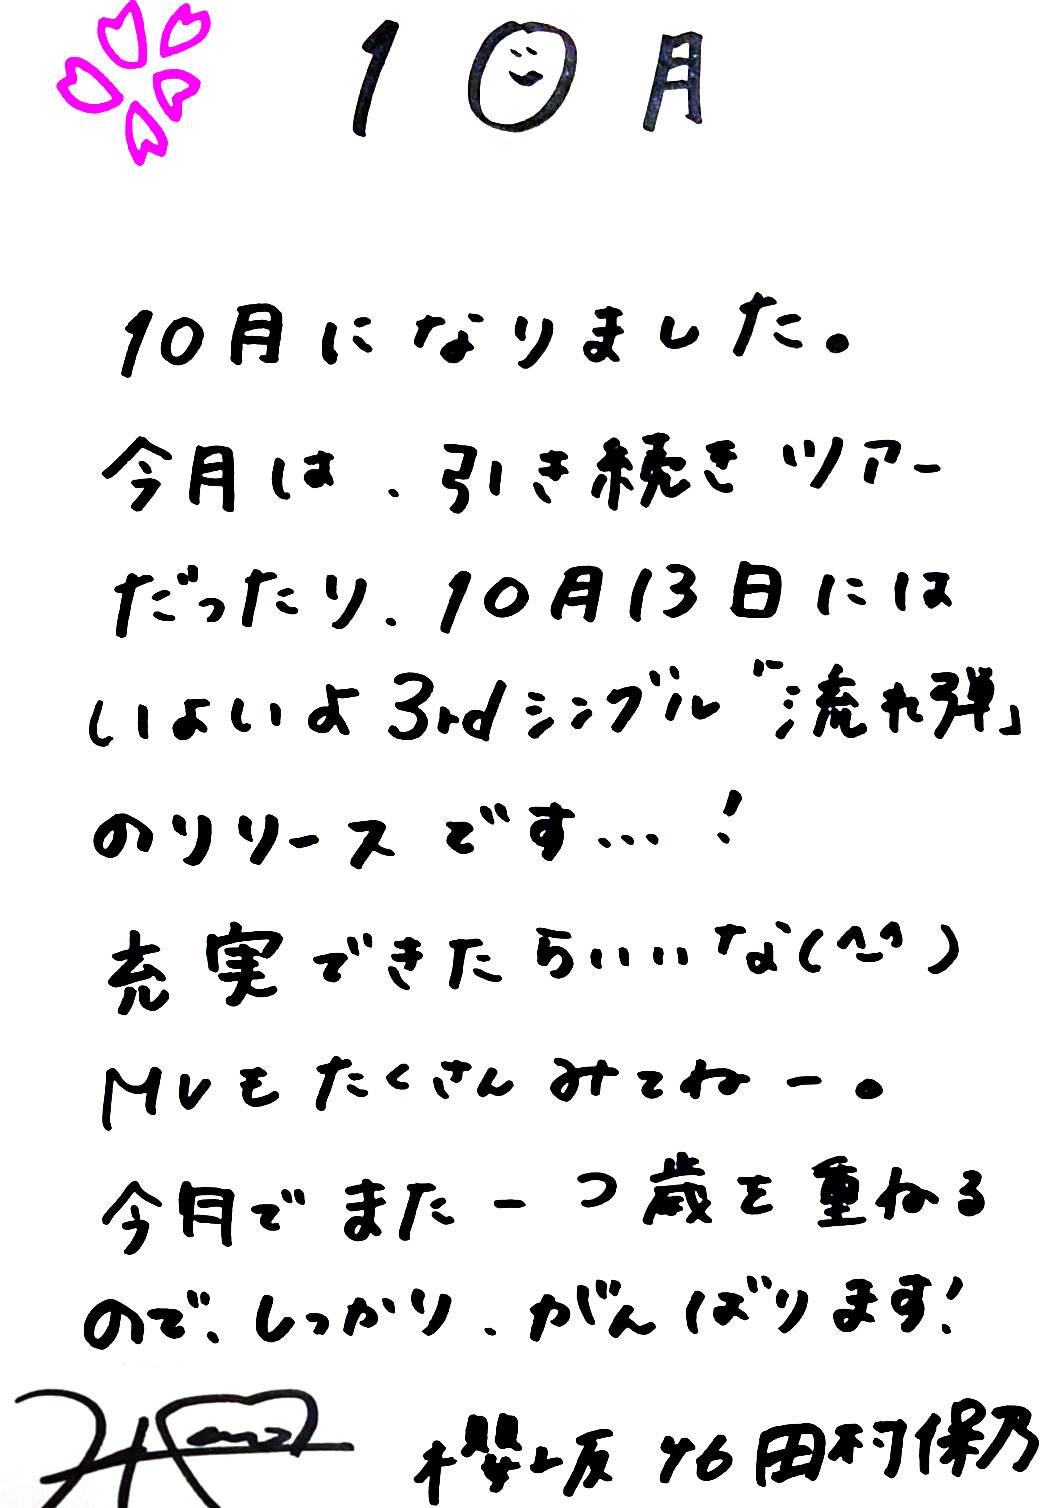 10月
10月になりました。
今月は、引き続きツアー
だったり、10月13日には
いよいよ3rdシングル「流れ弾」
のリリースです…!
充実できたらいいな(^-^)
MVもたくさんみてねー。
今月でまた一つ歳を重ねる
ので、しっかり、がんばります!
櫻坂46田村保乃